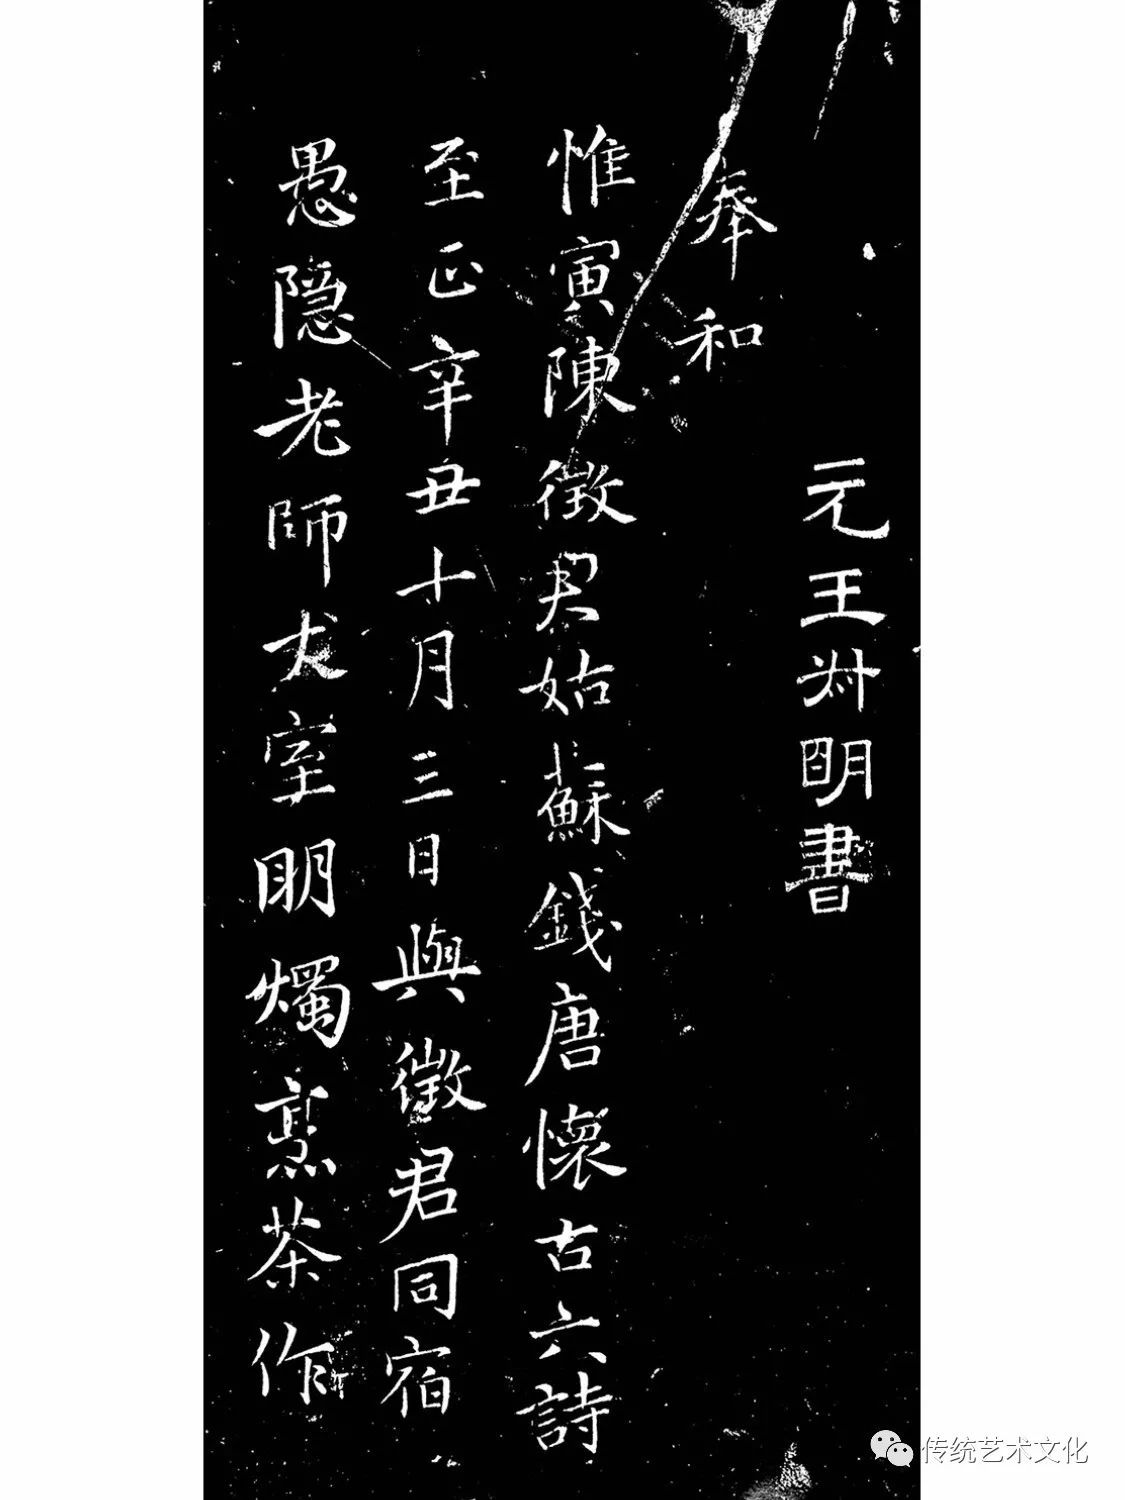 元王叔明書
奉和
惟寅陳徵君姑蘇錢唐懷古六詩
至正辛丑十月三日與徵君同宿
愚隐老師丈室明燭烹茶作
传统艺术文化